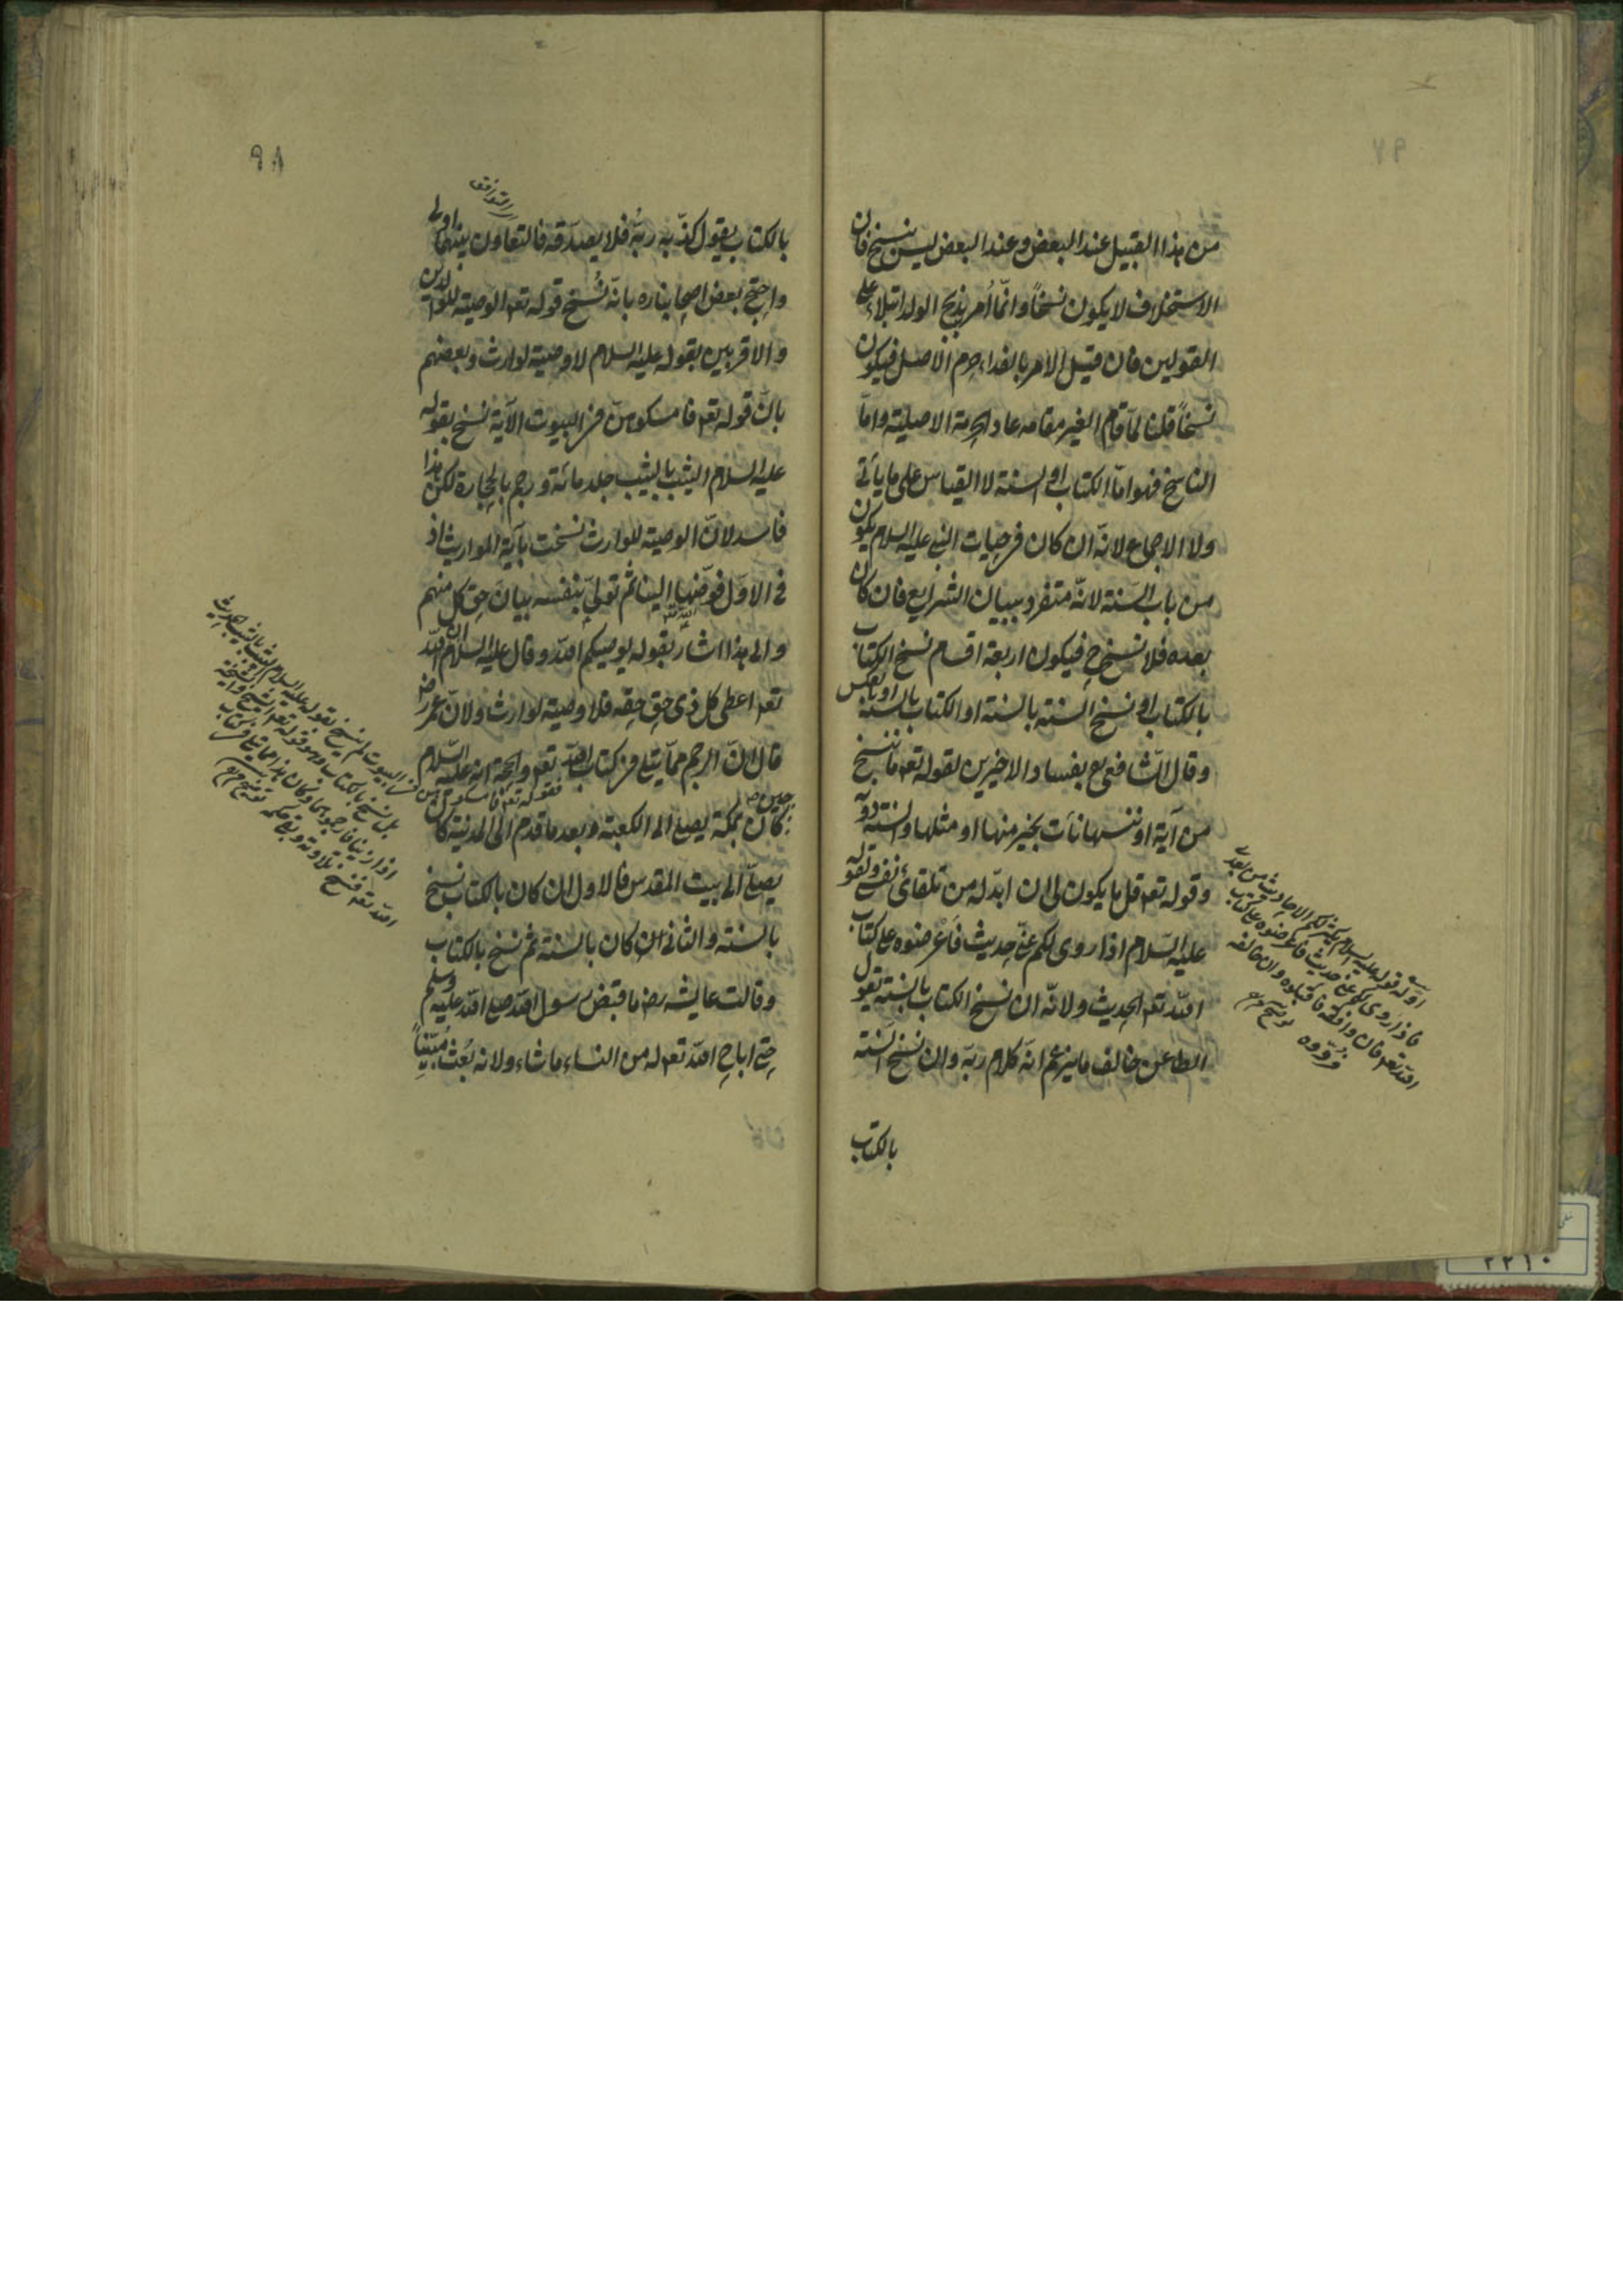 ٩٧
من هذا القبيل عند البعض وعند البعض ليس بنسخ فان
الاستخلاف لا يكون نسخاً وانّما أُمر بذبح الولد ابتلاء على
القولين فان قيل الامر بالفداء حرم الاصل فيكون
نسخاً قلنا لمّا قام الغير مقامه عاد الحرمة الاصلية وامّا
الناسخ فهو امّا الكتاب او السنة لا القياس على ما يأتى
ولا الاجماع لانّه ان كان فى حيات النبى عليه السلام يكون
من باب السنة لانّه متفرد ببيان الشرايع فان كان
بعده فلا نسخ ح فيكون اربعة اقسام نسخ الكتاب
بالكتاب او نسخ السنة بالسنة او الكتاب بالسنة او بالعكس
وقال الشافعى رع بفساد الاخيرين لقوله تعه ما ننسخ
من آية او ننسها نأت بخير منها او مثلها والسنة دونه
وقوله تعه قل ما يكون لى ان ابدّله من تلقائ نفسى ولقوله
عليه السّلام اذا روى لكم عنّى حديث فاعرضوه على كتاب
الله تعه الحديث ولانّه ان نسخ الكتاب بالسنة يقول
الطاعن خالف ما يزعم انّه كلام ربّه وان نسخ السنة
بالكتاب
اوّله قوله عليه السلام يكثر لكم الاحاديث من بعدى
فاذا روى لكم عنى حديث فاعرضوه على كتاب
الله تعه فان وافقه فاقبلوه وان خالفه
فردّوه توضيح
٩٨
بالكتاب يقول كذّبه ربّه فلا يصدّقه فالتعاون بينهما اولى
والتوافق
واحتج بعض اصحابنا ره بانّه نُسخ قوله تعه الوصية للوالدين
والاقربين بقوله عليه السلام لا وصية لوارث وبعضهم
بانّ قوله تعه فامسكوهنّ فى البيوت الآية نسخ بقوله
عليه السلام الثيب بالثيب جلد مائة ورجم بالحجارة لكن هذا
فاسد لانّ الوصية للوارث نسخت بآية المواريث اذ
فى الاوّل فوّضها الينا ثم تولىّ بنفسه بيانَ حق كل منهم
والى هذا اشار بقوله يوصيكم الله وقال عليه السلام ان الله
تعه اعطى كل ذى حق حقه فلا وصية لوارث ولانّ عمر رضـ
قال انّ الرجم ممّا يتلى فى كتاب الله تعه والحجة انه عليه السّلام
حين كان بمكة يصلى الى الكعبة وبعد ما قدم الى المدينة كان
يصلّى الى بيت المقدس فالاول ان كان بالكتاب نسخ
بالسنة والثانى ان كان بالسنة ثم نسخ بالكتاب
وقالت عايشه رضـ ما قبض رسول الله صلى الله عليه وسلم
حتى اباح الله تعه له من النساء ما شاء ولانه بُعث مُبَيِّناً
فقوله تعه فامسكوهن فى البيوت لم ينسخ بقوله عليه السلام الثيب بالثيب الحديث
بل نسخ بالكتاب وهو قوله تعه الشيخ والشيخة
اذا زنيا فارجموهما وكان هذا مما يتلى فى كتاب
الله تعه فنسخ تلاوته وبقى حكمه توضيح
٢٢١٠